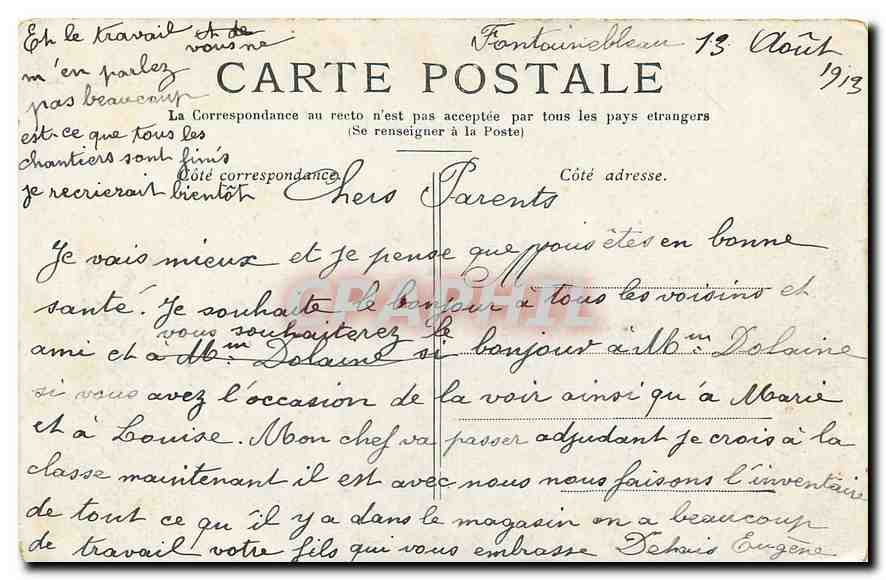 Fontainebleau 13 Août
1913
CARTE POSTALE
La Correspondance au recto n'est pas acceptée par tous les pays etrangers
(Se renseigner à la Poste)
Côté correspondance.
Côté adresse.
Chers Parents
Je vais mieux et je pense que vous êtes en bonne
santé. Je souhaite le bonjour à tous les voisins et
vous souhaiterez le
ami et à Mm Dolaine si bonjour à Mm: Dolaine
si vous avez l'occasion de la voir ainsi qu'à Marie
et à Louise. Mon chef va passer adjudant je crois à la
classe maintenant il est avec nous nous faisons l'inventaire
de tout ce qu'il y a dans le magasin on a beaucoup
de travail votre fils qui vous embrasse Dehais Eugène
Et le travail et de
vous ne
m'en parlez
pas beaucoup
est-ce que tous les
chantiers sont finis
je recrierait bientôt
CPAPHIL